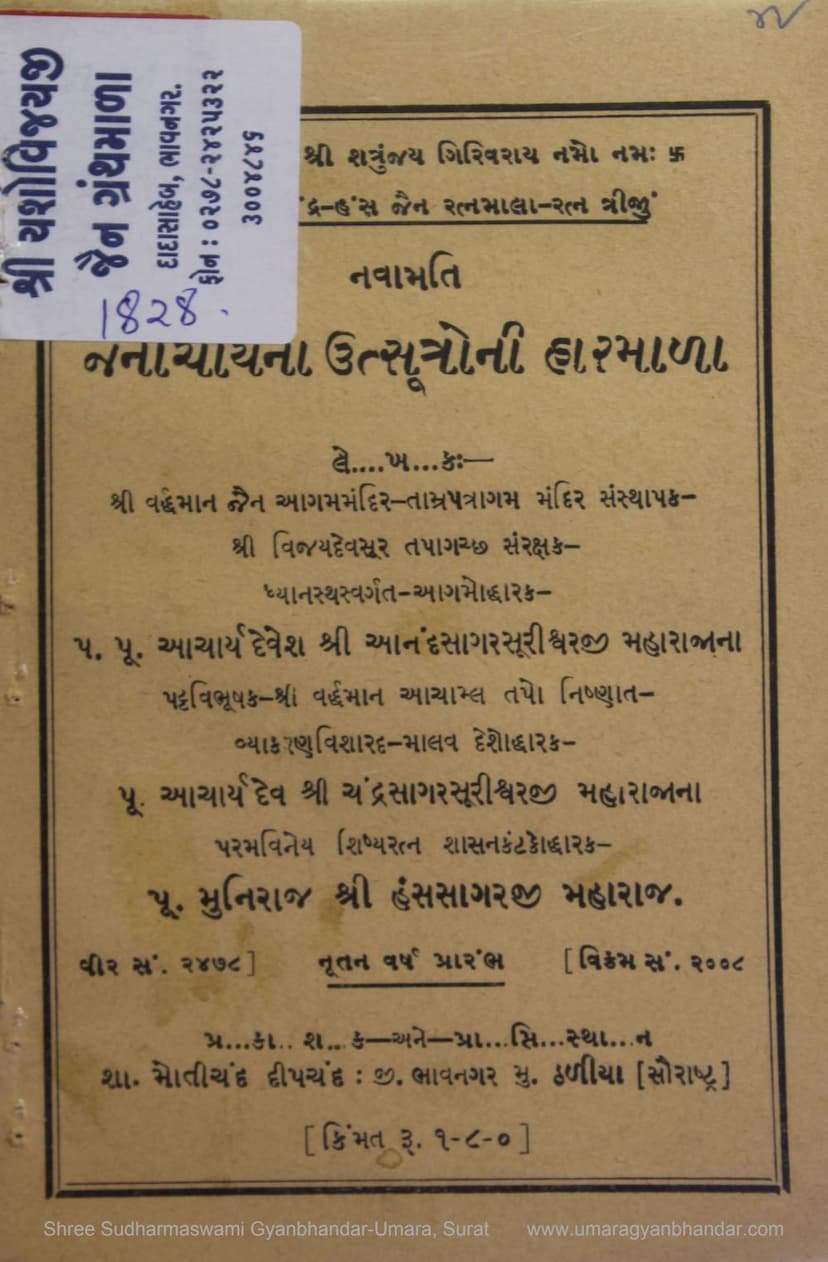 શ્રી યશોવિજયજી
જૈન ગ્રંથમાળા
દાદાસાહેબ, ભાવનગર.
ફોન : ૦૨૭૮-૨૪૨૫૩૨૨
૩૦૦૪૮૪૬
1828.
શ્રી શત્રુંજય ગિરિવરાય નમો નમઃ 卐
દ્ર-હંસ જૈન રત્નમાલા-રત્ન ત્રીજું
નવામતિ
જૈનાચાર્યના ઉત્સૂત્રોની હારમાળા
લે....ખ...કઃ—
શ્રી વર્દ્ધમાન જૈન આગમમંદિર-તામ્રપત્રાગમ મંદિર સંસ્થાપક-
શ્રી વિજયદેવસૂર તપાગચ્છ સંરક્ષક-
ધ્યાનસ્થસ્વર્ગત-આગમોદ્ધારક-
પ. પૂ. આચાર્યદેવેશ શ્રી આનંદસાગરસૂરીશ્વરજી મહારાજાના
પટ્ટવિભૂષક-શ્રી વર્દ્ધમાન આચામ્લ તપો નિષ્ણાત-
વ્યાકરણવિશારદ-માલવ દેશોદ્ધારક-
પૂ. આચાર્યદેવ શ્રી ચંદ્રસાગરસૂરીશ્વરજી મહારાજાના
પરમવિનેય શિષ્યરત્ન શાસનકંટકોદ્ધારક-
પૂ. મુનિરાજ શ્રી હંસસાગરજી મહારાજ.
વીર સં. ૨૪૭૮ ] નૂતન વર્ષ પ્રારંભ [ વિક્રમ સં. ૨૦૦૮
પ્ર...કા.. શ... ક—અને—પ્રા...સિ...સ્થા...ન
શા. મોતીચંદ દીપચંદ : જી. ભાવનગર મુ. ઠળીયા [સૌરાષ્ટ્ર]
[ કિંમત રૂ. ૧-૮-૦ ]
Shree Sudharmaswami Gyanbhandar-Umara, Surat www.umaragyanbhandar.com